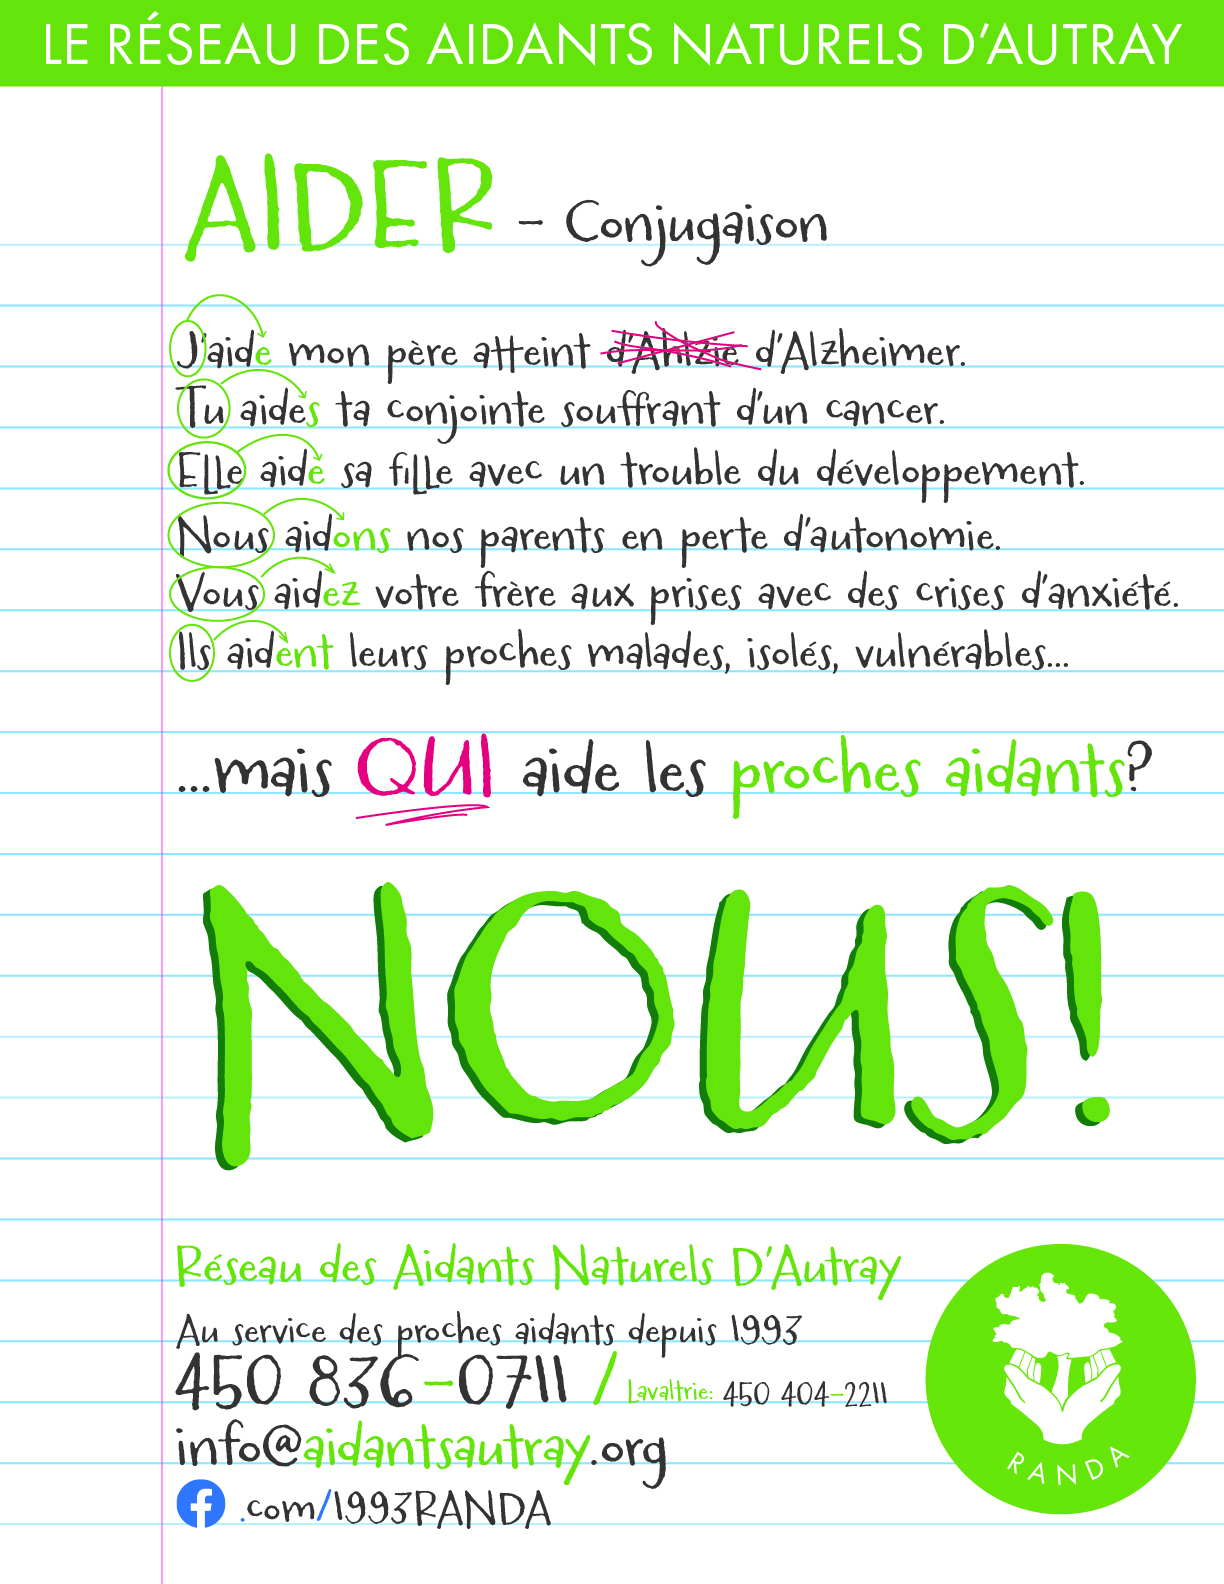 LE RÉSEAU DES AIDANTS NATURELS D'AUTRAY
AIDER - Conjugaison
J'aide mon père atteint d'Ahlzie d'Alzheimer.
Tu aides ta conjointe souffrant d'un cancer.
Elle aide sa fille avec un trouble du développement.
Nous aidons nos parents en perte d'autonomie.
Vous aidez votre frère aux prises avec des crises d'anxiété.
Ils aident leurs proches malades, isolés, vulnérables...
...mais QUI aide les proches aidants?
NOUS!
Réseau des Aidants Naturels D'Autray
Au service des proches aidants depuis 1993
450 836-0711 / Lavaltrie: 450 404-2211
info@aidantsautray.org
.com/1993RANDA
RANDA